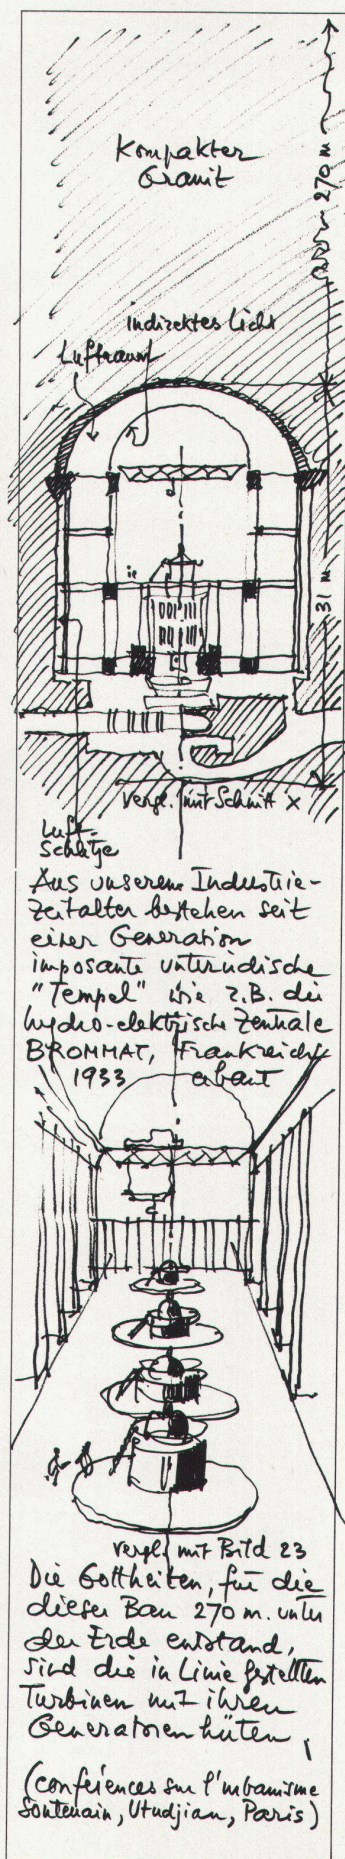 Kompakter
Granit
270 m
indirektes Licht
Luftraum
31 m
vergl. mit Schnitt X
Luft-
Schlitze
Aus unserem Industrie-
zeitalter bestehen seit
einer Generation
imposante unterirdische
"Tempel" wie z.B. die
hydro-elektrische Zentrale
BROMMAT, Frankreich,
1933 erbaut
vergl. mit Bild 23
Die Gottheiten, für die
dieser Bau 270 m. unter
der Erde entstand,
sind die in Linie gestellten
Turbinen mit ihren
Generatorenhüten,
(conférences sur l'urbanisme
souterrain, Utudjian, Paris)